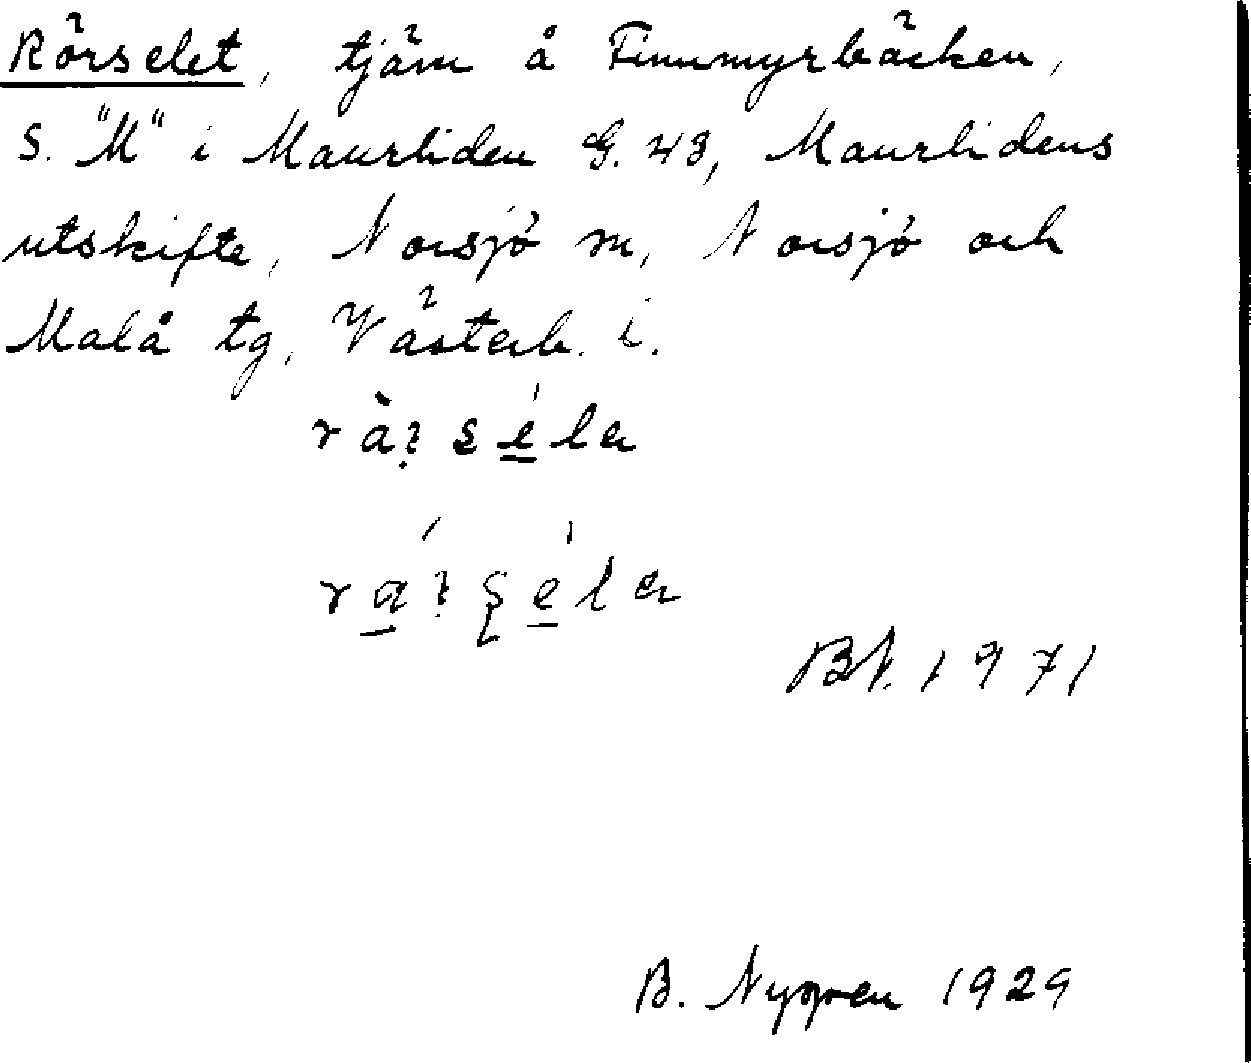 Rörselet, tjärn å Finnmyrbäcken,
S. "M" i Maurliden G. 43, Maurlidens
utskifte, Norsjö sn, Norsjö och
Malå tg, Västerb. l.
B.N. 1971
B. Nygren 1929